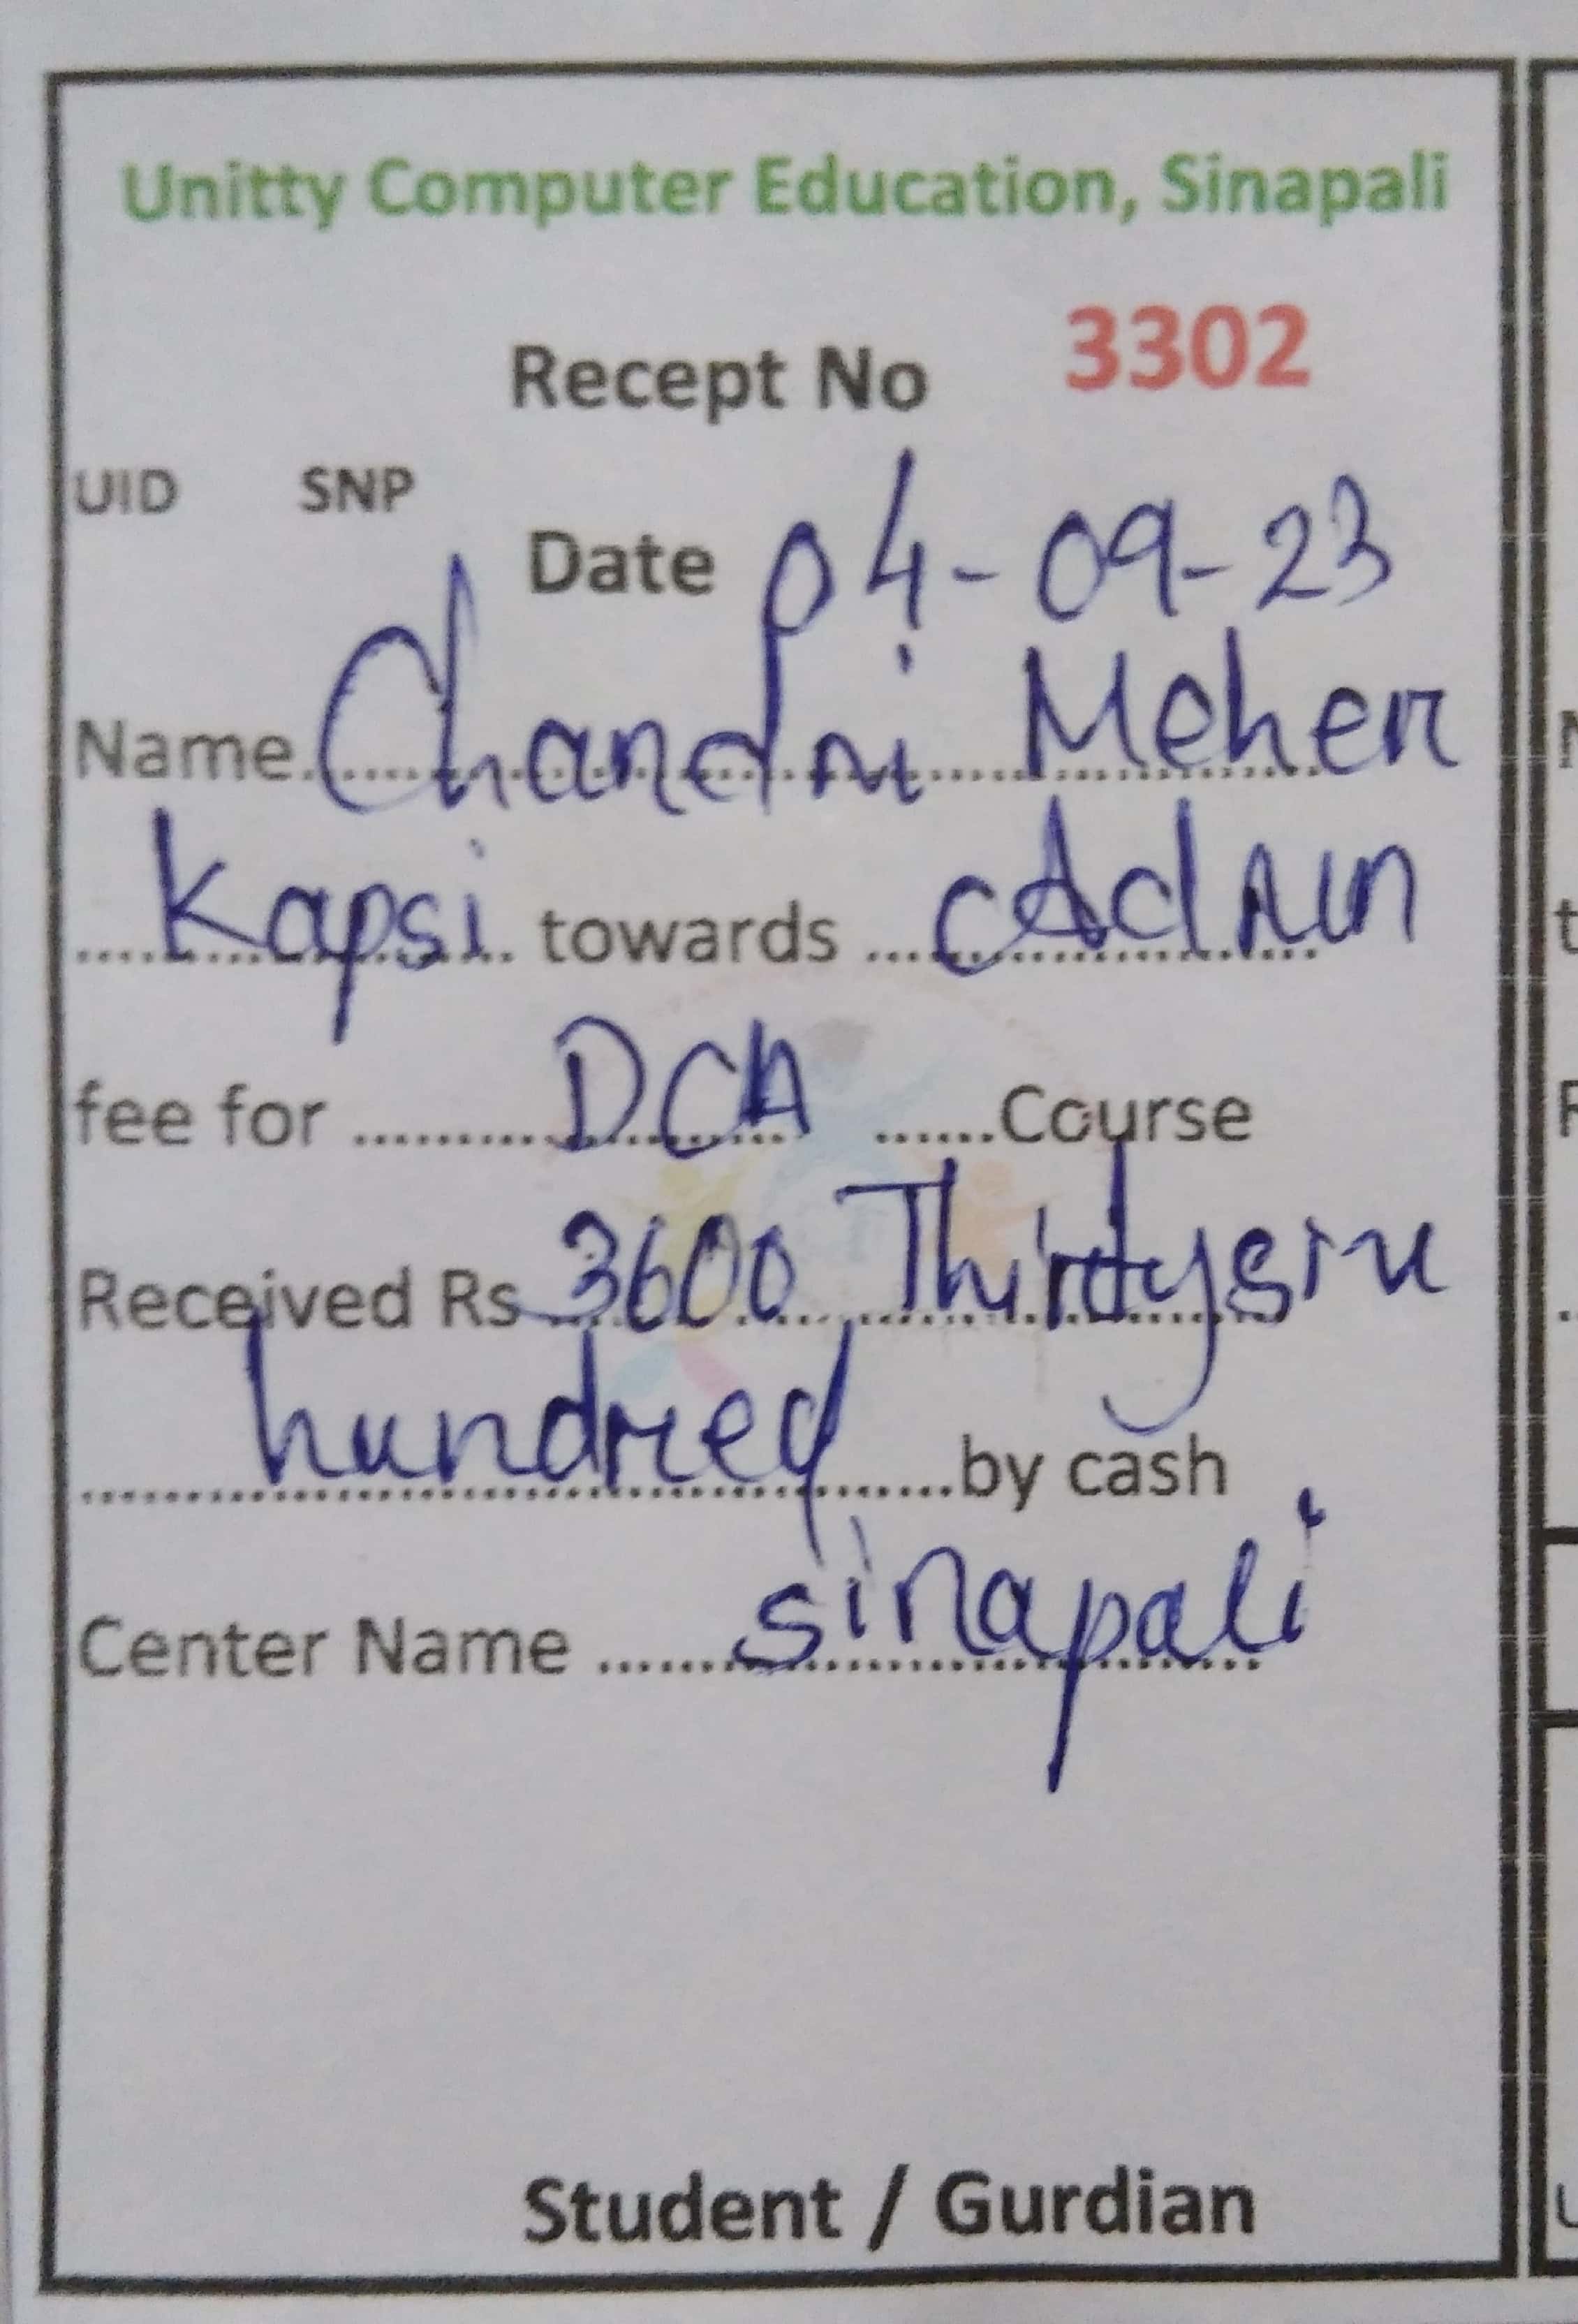 Unitty Computer Education, Sinapali
Recept No 3302
UID SNP
Date 04-09-23
Name Chandni Meher
Kapsi towards Admn
fee for DCA Course
Received Rs 3600 Thirtysix
hundred by cash
Center Name sinapali
Student / Gurdian